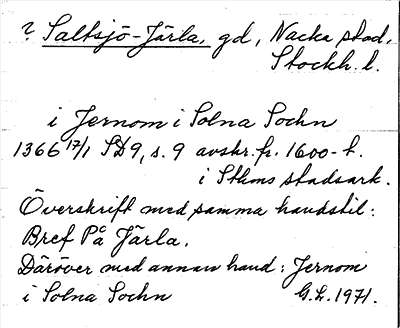 ? Saltsjö-Järla, gd, Nacka stad,
Stockh. l.
i Jernom i Solna Sochn
1366 17/1 SD9, s. 9 avskr. fr. 1600-t.
i Sthms stadsark.
Överskrift med samma handstil:
Bref På Järla.
Däröver med annan hand: Jernom
i Solna Sochn G.L. 1971.